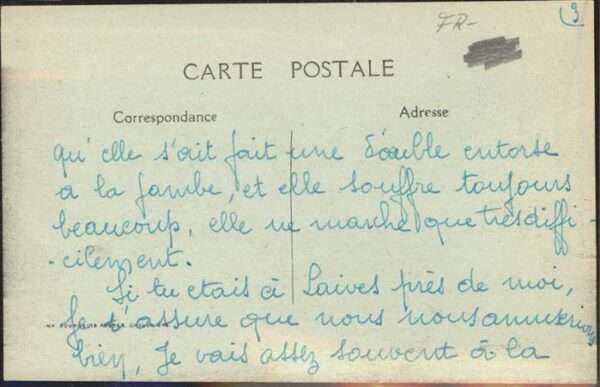 FR-
3
CARTE POSTALE
Correspondance
Adresse
qu'elle s'ait fait une double entorse
a la jambe, et elle souffre toujours
beaucoup, elle ne marche que très diffi-
-cilement.
Si tu etais à Laives près de moi,
Je t'assure que nous nous amuserions
bien, Je vais assez souvent à la